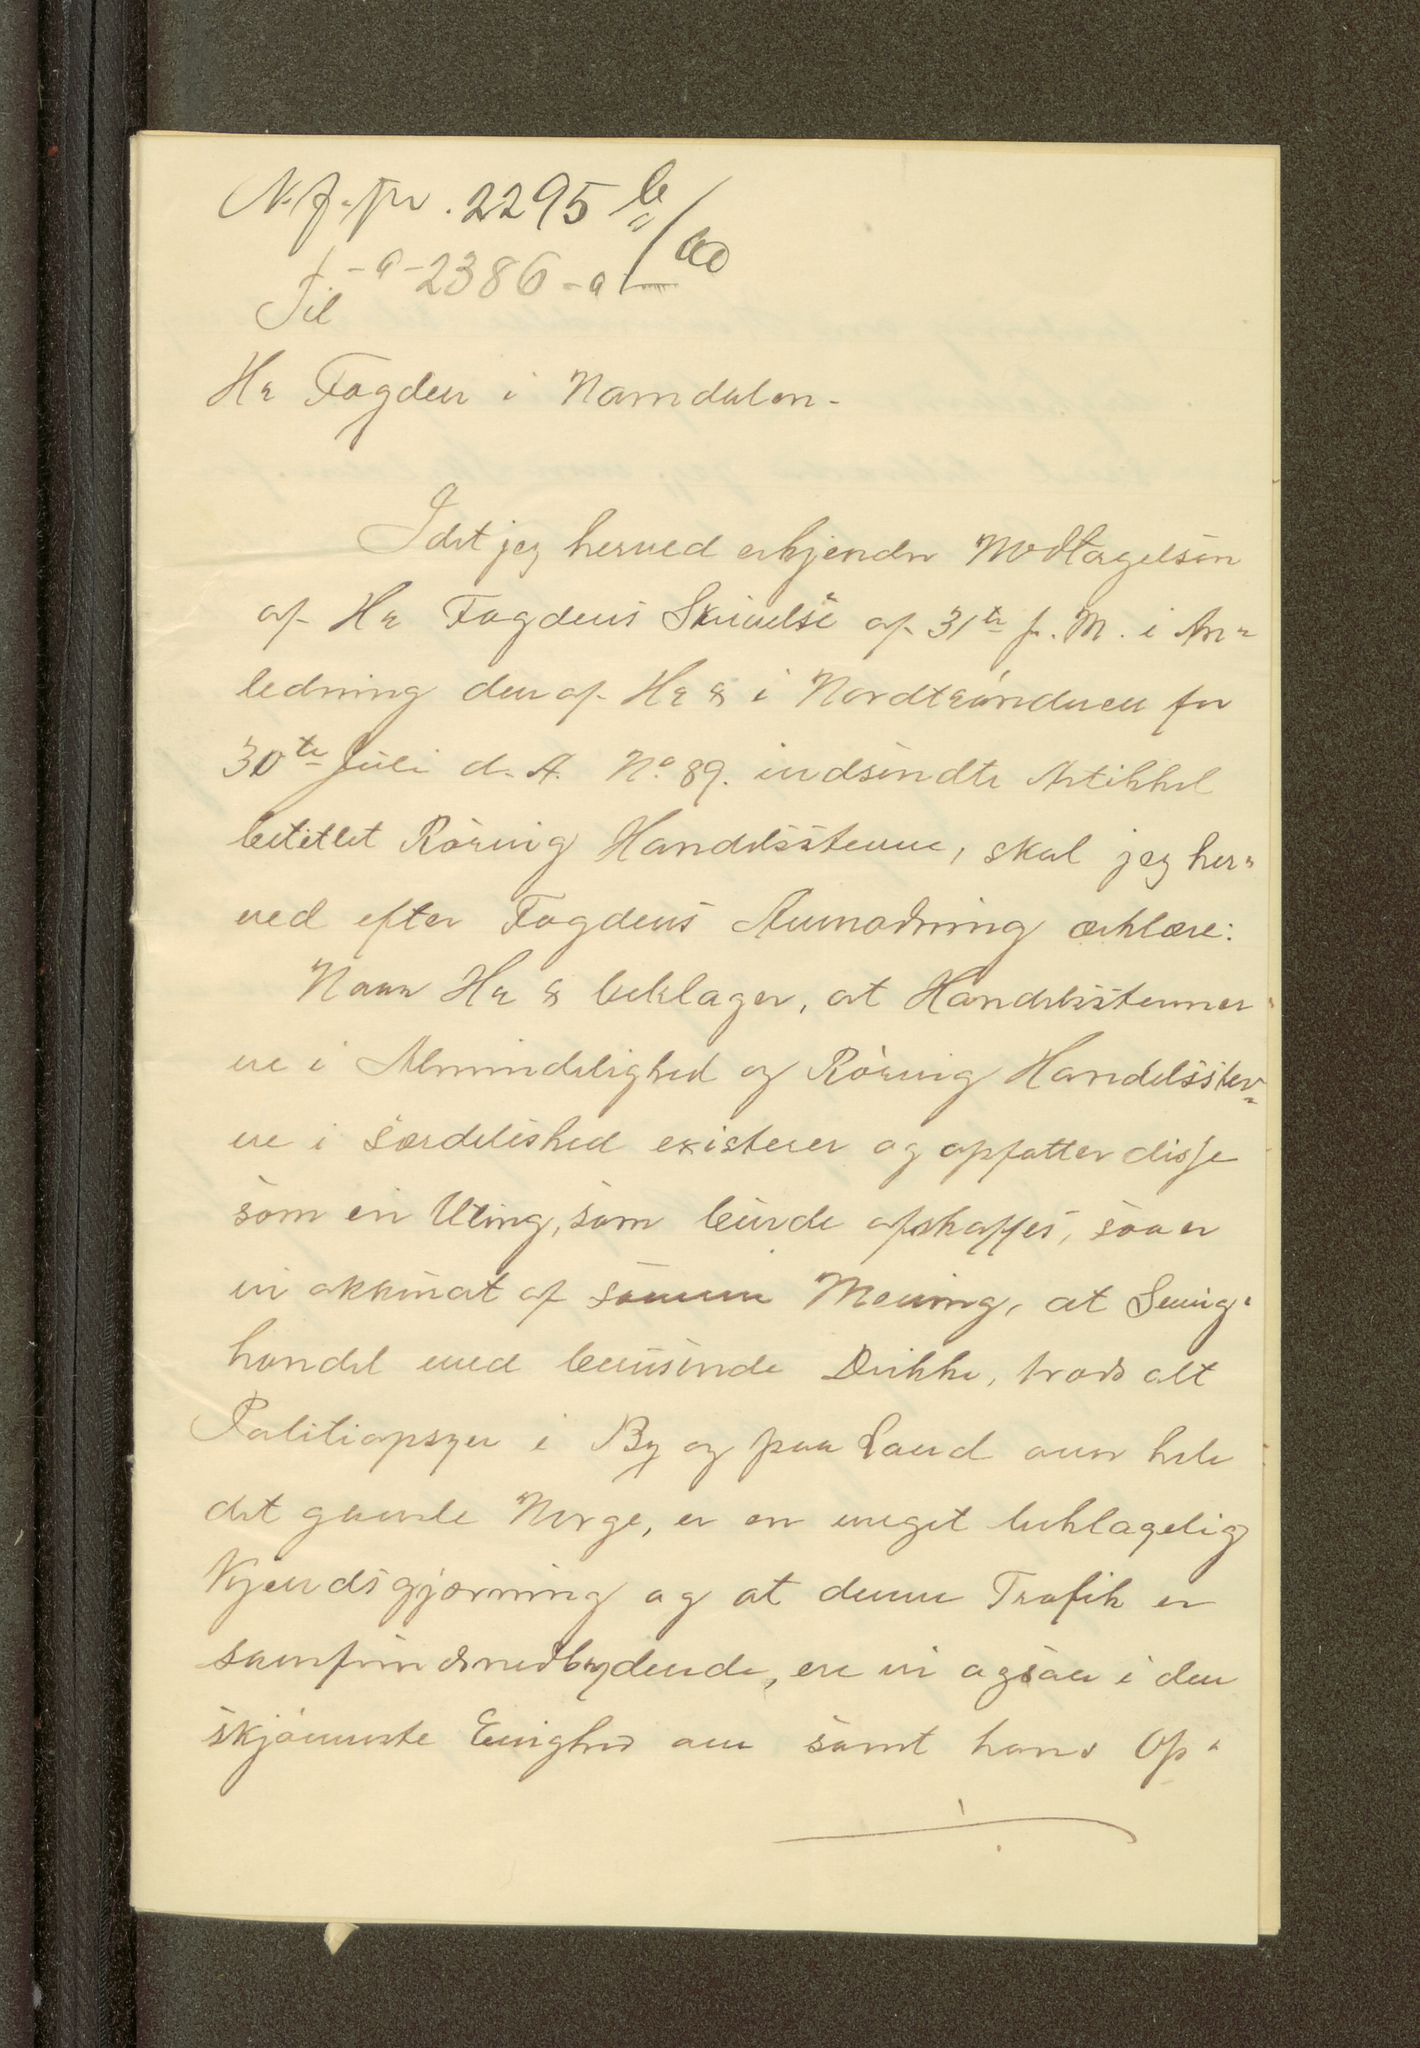 N. f. pr. 2295 b/00
2386
Til
Hr Fogden i Namdalen.
Idet jeg herved erkjender Modtagelsen
af Hr Fogdens Skrivelse af 31te f. M. i An-
ledning den af Hr & i Nordtrønderen for
30te Juli d. A. No 89. indsendte Artikkel
betitlet Rørvig Handelsstevne, skal jeg her-
ved efter Fogdens Anmodning erklære:
Naar Hr & beklager, at Handelsstevner-
ne i Almindelighed og Rørvig Handelsstev-
ne i Særdeleshed existerer og opfatter disse
som en Uting, som burde afskaffes, saa er
vi akkurat af samme Mening, at Smug-
handel med berusende Drikke, trods alt
Politiopsyn i By og paa Land over hele
det gamle Norge, er en meget beklagelig
Kjendsgjerning og at denne Trafik er
samfundsnedbrydende, ere vi ogsaa i den
skjønneste Enighed om samt hans Op-